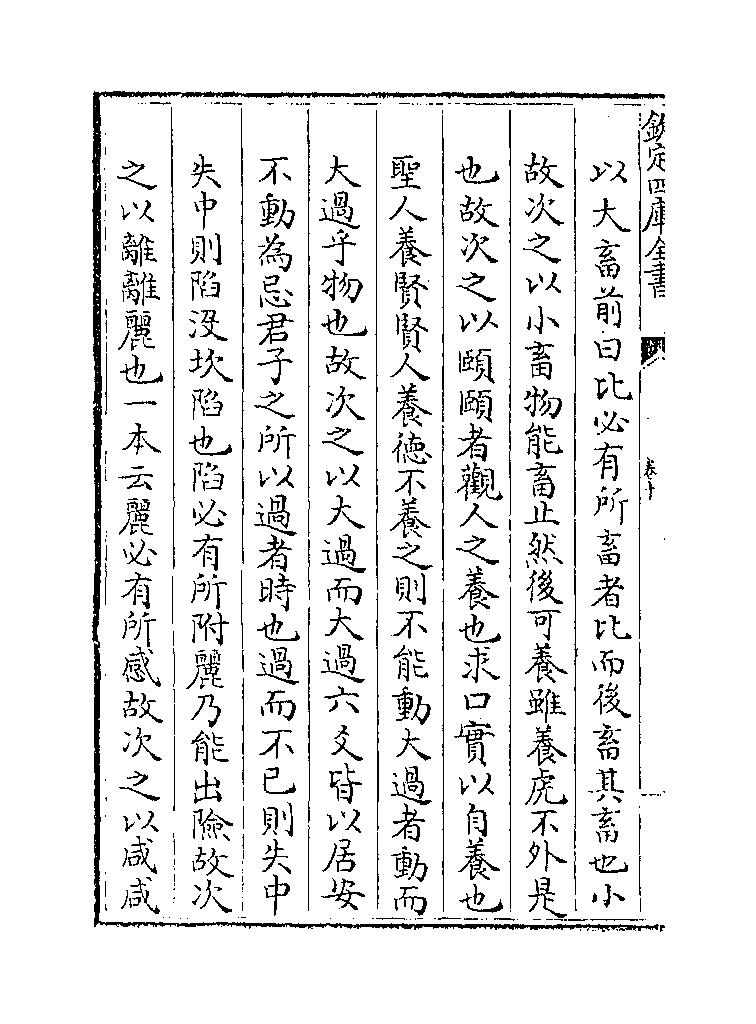 欽定四庫全書
卷十
以大畜前曰比必有所畜者比而後畜其畜也小
故次之以小畜物能畜止然後可養雖養虎不外是
也故次之以頤頤者觀人之養也求口實以自養也
聖人養賢賢人養徳不養之則不能動大過者動而
大過乎物也故次之以大過而大過六爻皆以居安
不動為忌君子之所以過者時也過而不已則失中
失中則陷没坎陷也陷必有所附麗乃能出險故次
之以離離麗也一本云麗必有所感故次之以咸咸